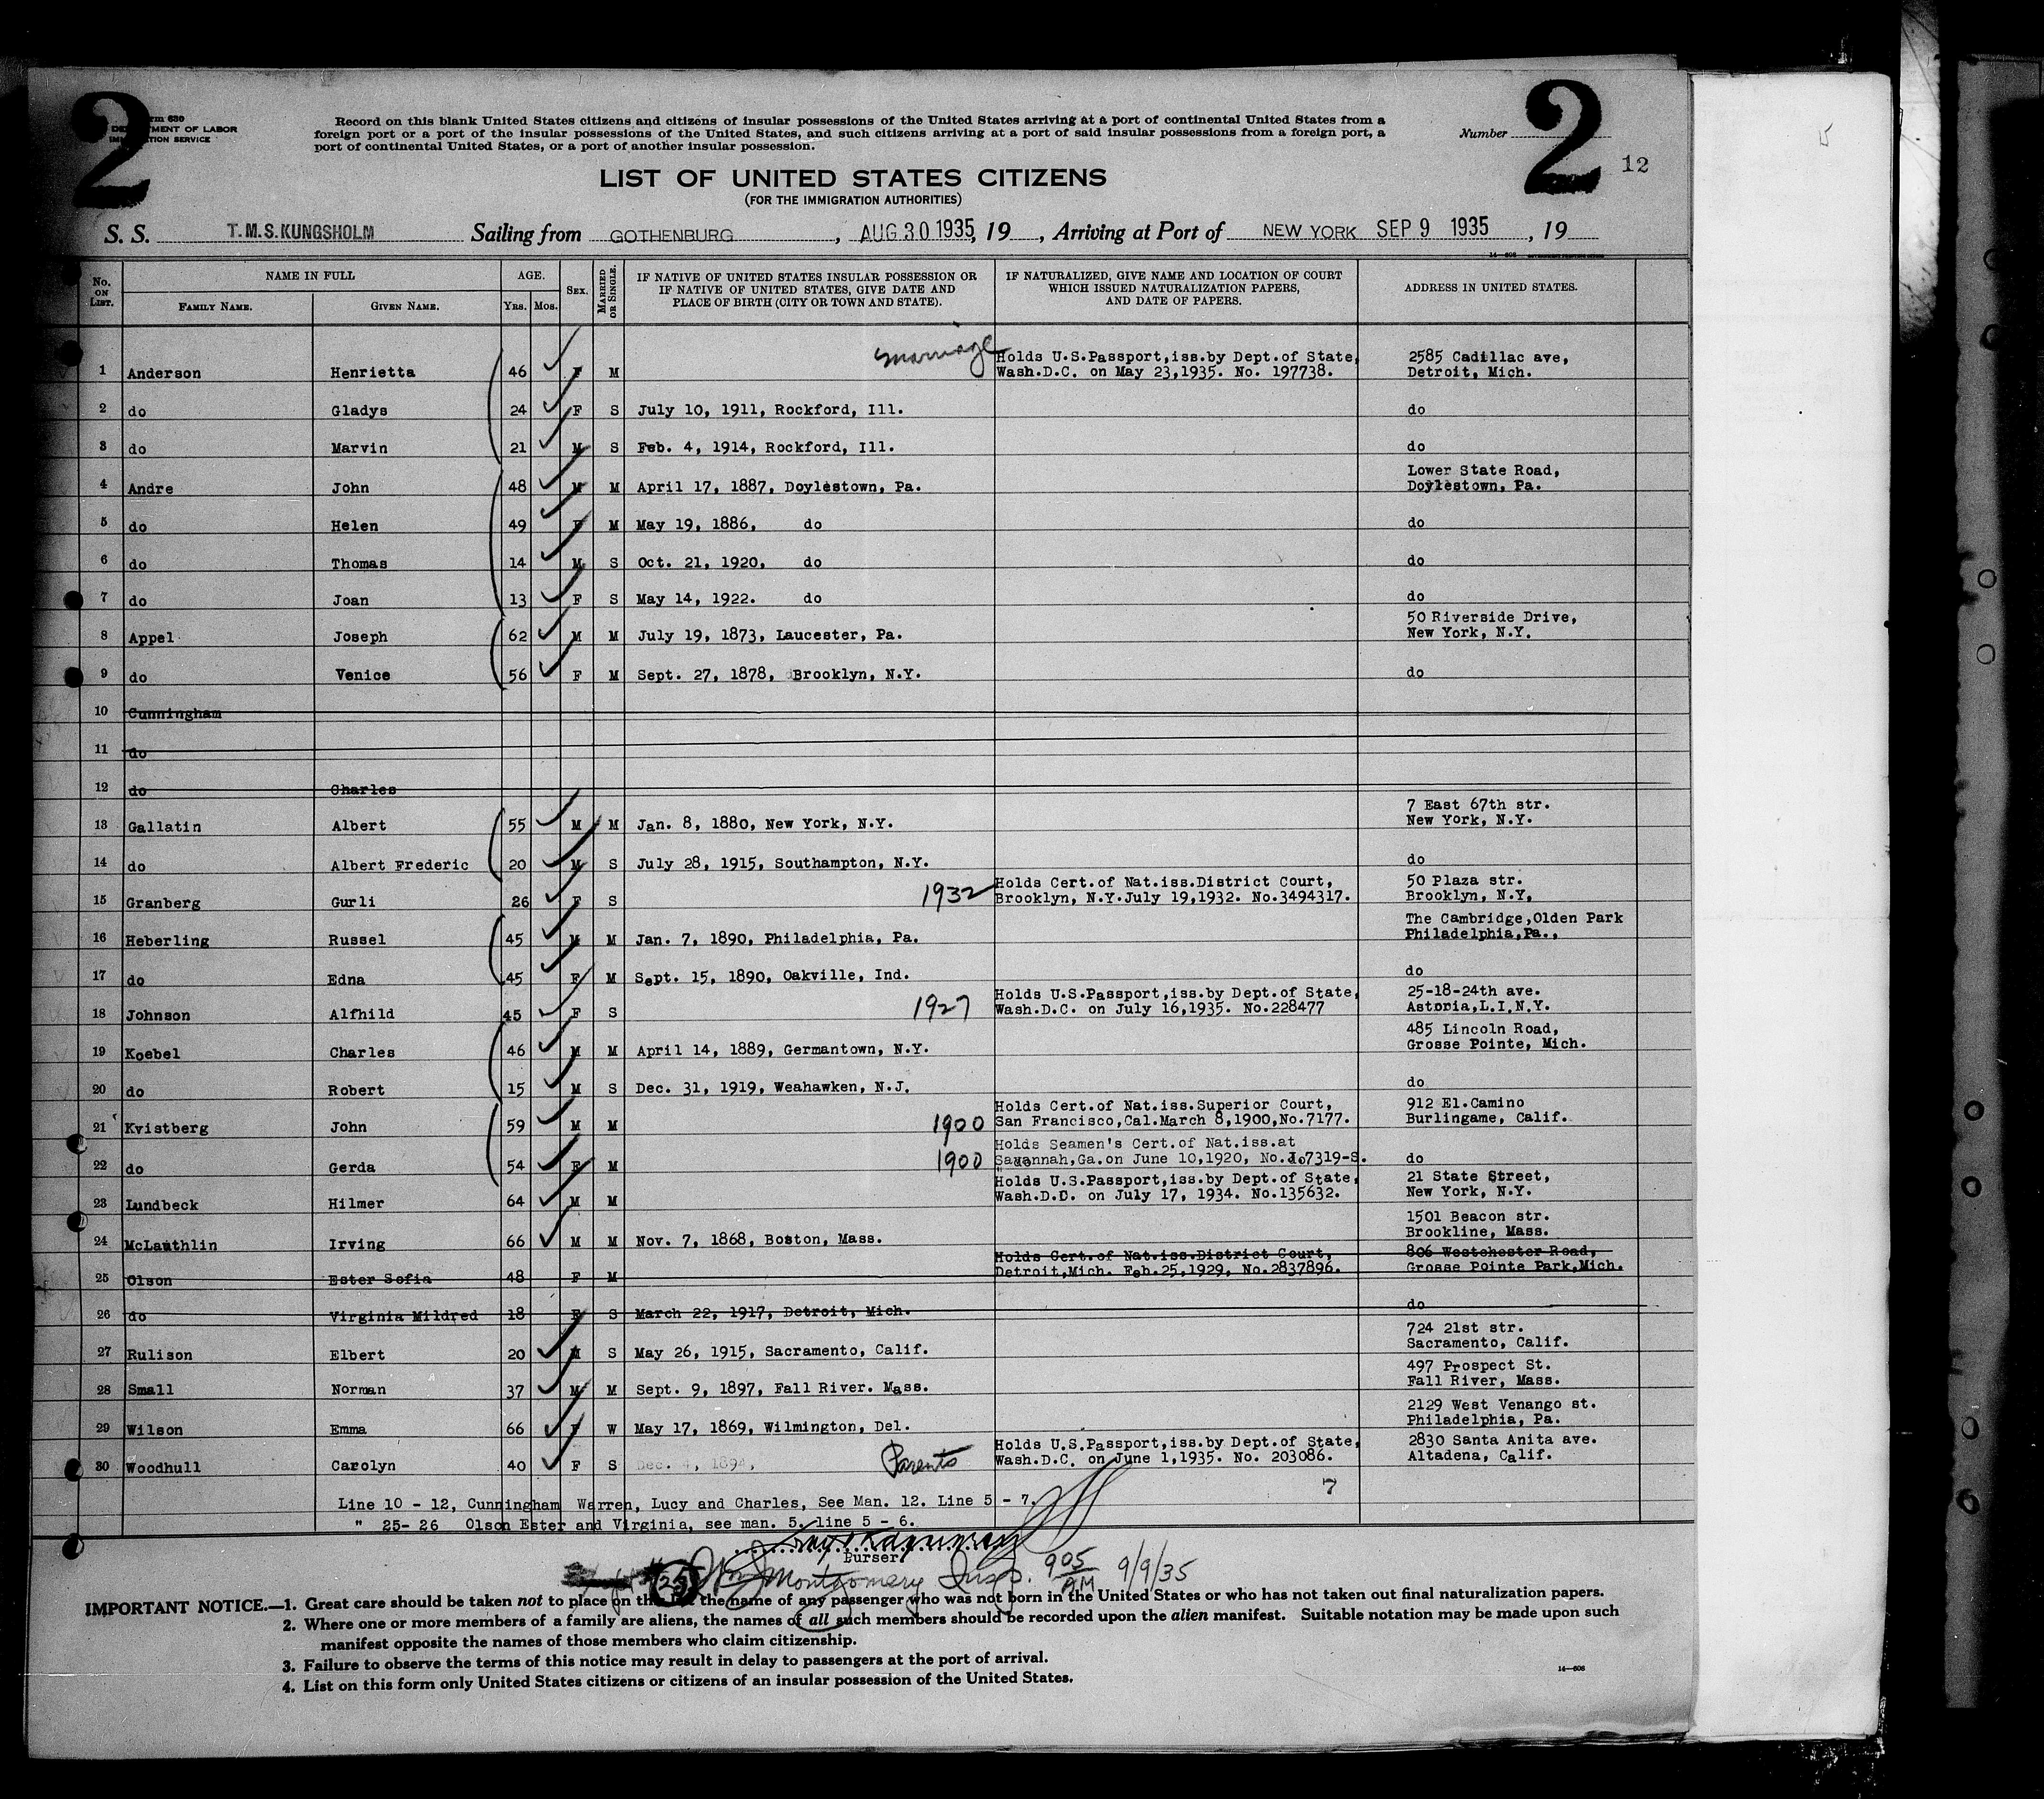 2
2
Form 630
DEPARTMENT OF LABOR
IMMIGRATION SERVICE
Record on this blank United States citizens and citizens of insular possessions of the United States arriving at a port of continental United States from a
foreign port or a port of the insular possessions of the United States, and such citizens arriving at a port of said insular possessions from a foreign port, a
port of continental United States, or a port of another insular possession.
Number
12
LIST OF UNITED STATES CITIZENS
(FOR THE IMMIGRATION AUTHORITIES)
S. S. T.M.S.KUNGSHOLM Sailing from GOTHENBURG, AUG 30 1935, 19 , Arriving at Port of NEW YORK SEP 9 1935, 19
14—606
No. ON LIST. NAME IN FULL FAMILY NAME. GIVEN NAME. AGE. YRS. MOS. SEX. MARRIED OR SINGLE. IF NATIVE OF UNITED STATES INSULAR POSSESSION OR IF NATIVE OF UNITED STATES, GIVE DATE AND PLACE OF BIRTH (CITY OR TOWN AND STATE). IF NATURALIZED, GIVE NAME AND LOCATION OF COURT WHICH ISSUED NATURALIZATION PAPERS, AND DATE OF PAPERS. ADDRESS IN UNITED STATES.
1 Anderson Henrietta 46 F M marriage Holds U.S.Passport,iss.by Dept.of State, Wash.D.C. on May 23,1935. No. 197738. 2585 Cadillac ave, Detroit, Mich.
2 do Gladys 24 F S July 10, 1911, Rockford, Ill. do
3 do Marvin 21 M S Feb. 4, 1914, Rockford, Ill. do
4 Andre John 48 M M April 17, 1887, Doylestown, Pa. Lower State Road, Doylestown, Pa.
5 do Helen 49 F M May 19, 1886, do do
6 do Thomas 14 M S Oct. 21, 1920, do do
7 do Joan 13 F S May 14, 1922. do do
8 Appel Joseph 62 M M July 19, 1873, Laucester, Pa. 50 Riverside Drive, New York, N.Y.
9 do Venice 56 F M Sept. 27, 1878, Brooklyn, N.Y. do
10 Cunningham
11 do
12 do Charles
13 Gallatin Albert 55 M M Jan. 8, 1880, New York, N.Y. 7 East 67th str. New York, N.Y.
14 do Albert Frederic 20 M S July 28, 1915, Southampton, N.Y. do
15 Granberg Gurli 26 F S 1932 Holds Cert.of Nat.iss.District Court, Brooklyn, N.Y.July 19,1932. No.3494317. 50 Plaza str. Brooklyn, N.Y,
16 Heberling Russel 45 M M Jan. 7, 1890, Philadelphia, Pa. The Cambridge,Olden Park Philadelphia,Pa.,
17 do Edna 45 F M Sept. 15, 1890, Oakville, Ind. do
18 Johnson Alfhild 45 F S 1927 Holds U.S.Passport,iss.by Dept.of State, Wash.D.C. on July 16,1935. No.228477 25-18-24th ave. Astoria,L.I,N.Y.
19 Koebel Charles 46 M M April 14, 1889, Germantown, N.Y. 485 Lincoln Road, Grosse Pointe, Mich.
20 do Robert 15 M S Dec. 31, 1919, Weahawken, N.J. do
21 Kvistberg John 59 M M 1900 Holds Cert.of Nat.iss.Superior Court, San Francisco,Cal.March 8,1900,No.7177. 912 El.Camino Burlingame, Calif.
22 do Gerda 54 F M 1900 do do
Holds Seamen's Cert.of Nat.iss.at Savannah,Ga.on June 10,1920, No. 7319-S.
23 Lundbeck Hilmer 64 M M Holds U.S.Passport,iss.by Dept.of State, Wash.D.C. on July 17, 1934. No.135632. 21 State Street, New York, N.Y.
24 McLauthlin Irving 66 M M Nov. 7, 1868, Boston, Mass. 1501 Beacon str. Brookline, Mass.
25 Olson Ester Sofia 48 F M Holds Cert.of Nat.iss.District Court, Detroit,Mich. Feb.25,1929, No.2837896. 806 Westchester Road, Grosse Pointe Park,Mich.
26 do Virginia Mildred 18 F S March 22, 1917, Detroit, Mich. do
27 Rulison Elbert 20 M S May 26, 1915, Sacramento, Calif. 724 21st str. Sacramento, Calif.
28 Small Norman 37 M M Sept. 9, 1897, Fall River. Mass. 497 Prospect St. Fall River, Mass.
29 Wilson Emma 66 F W May 17, 1869, Wilmington, Del. 2129 West Venango st. Philadelphia, Pa.
30 Woodhull Carolyn 40 F S Dec. 4, 1894, Parents Holds U.S.Passport,iss.by Dept.of State, Wash.D.C. on June 1,1935. No. 203086. 2830 Santa Anita ave. Altadena, Calif.
7
Line 10 - 12, Cunningham Warren, Lucy and Charles, See Man. 12. Line 5 - 7.
" 25- 26 Olson Ester and Virginia, see man. 5. line 5 - 6.
Purser
25 Montgomery Insp. 905 AM 9/9/35
IMPORTANT NOTICE.—1. Great care should be taken not to place on this list the name of any passenger who was not born in the United States or who has not taken out final naturalization papers.
2. Where one or more members of a family are aliens, the names of all such members should be recorded upon the alien manifest. Suitable notation may be made upon such
manifest opposite the names of those members who claim citizenship.
3. Failure to observe the terms of this notice may result in delay to passengers at the port of arrival.
4. List on this form only United States citizens or citizens of an insular possession of the United States.
14—606